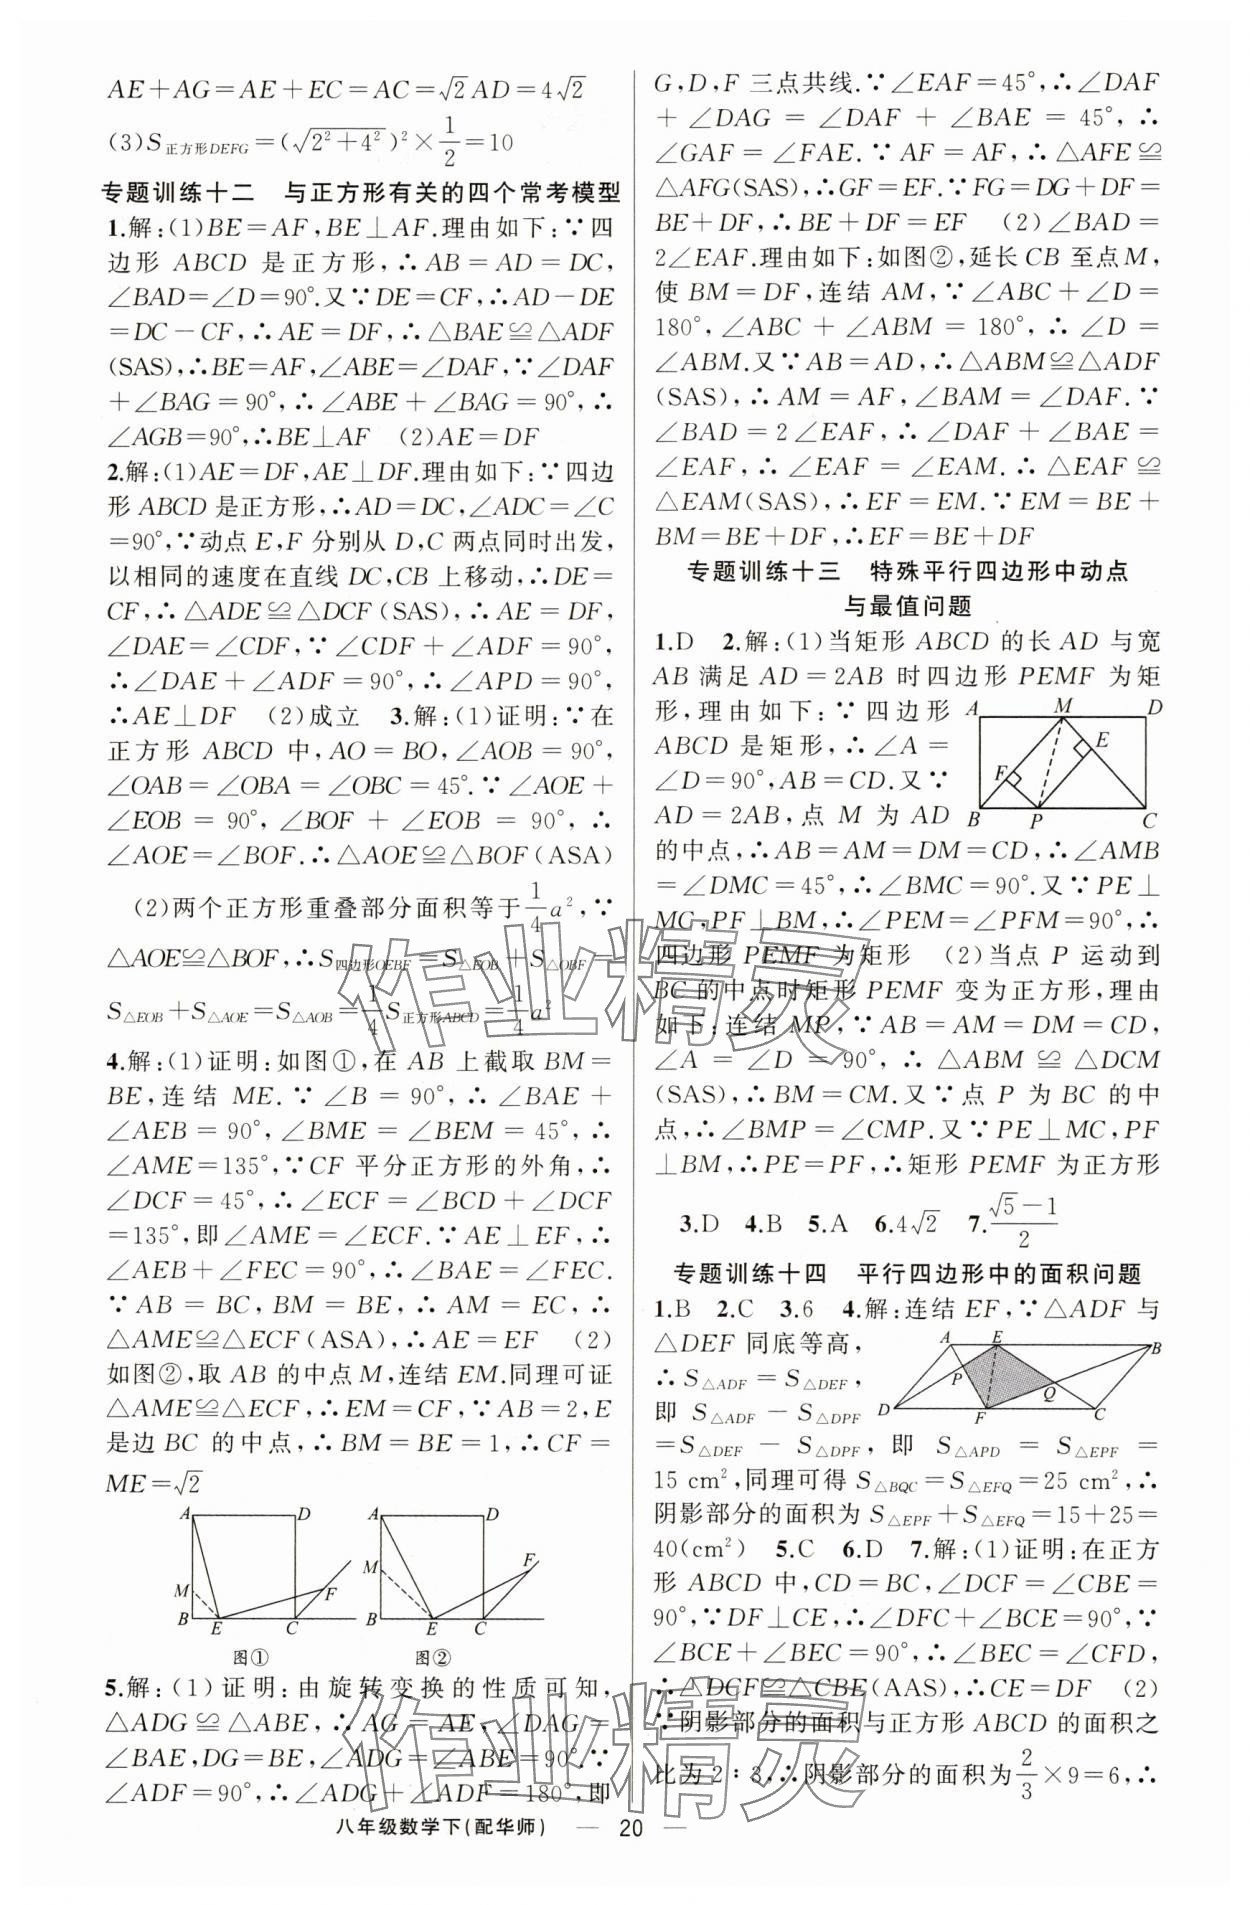 AE+AG=AE+EC=AC=√2AD=4√2
(3)S正方形DEFG=(√(2²+4²))²×1/2=10
专题训练十二　与正方形有关的四个常考模型
1.解:(1)BE=AF,BE⊥AF.理由如下:∵四
边形 ABCD 是正方形,∴AB=AD=DC,
∠BAD=∠D=90°.又∵DE=CF,∴AD-DE
=DC-CF,∴AE=DF,∴△BAE≌△ADF
(SAS),∴BE=AF,∠ABE=∠DAF,∵∠DAF
+∠BAG=90°,∴∠ABE+∠BAG=90°,∴
∠AGB=90°,∴BE⊥AF　(2)AE=DF
2.解:(1)AE=DF,AE⊥DF.理由如下:∵四边
形 ABCD 是正方形,∴AD=DC,∠ADC=∠C
=90°,∵动点 E,F 分别从 D,C 两点同时出发,
以相同的速度在直线 DC,CB 上移动,∴DE=
CF,∴△ADE≌△DCF(SAS),∴AE=DF,
∠DAE=∠CDF,∵∠CDF+∠ADF=90°,
∴∠DAE+∠ADF=90°,∴∠APD=90°,
∴AE⊥DF　(2)成立　3.解:(1)证明:∵在
正方形 ABCD 中,AO=BO,∠AOB=90°,
∠OAB=∠OBA=∠OBC=45°.∵∠AOE+
∠EOB=90°,∠BOF+∠EOB=90°,∴
∠AOE=∠BOF.∴△AOE≌△BOF(ASA)
(2)两个正方形重叠部分面积等于1/4a²,∵
△AOE≌△BOF,∴S四边形OEBF=S△EOB+S△OBF
S△EOB+S△AOE=S△AOB=1/4S正方形ABCD=1/4a²
4.解:(1)证明:如图①,在 AB 上截取 BM=
BE,连结 ME.∵∠B=90°,∴∠BAE+
∠AEB=90°,∠BME=∠BEM=45°,∴
∠AME=135°,∵CF 平分正方形的外角,∴
∠DCF=45°,∴∠ECF=∠BCD+∠DCF=
135°,即∠AME=∠ECF.∵AE⊥EF,∴
∠AEB+∠FEC=90°,∴∠BAE=∠FEC.
∵AB=BC,BM=BE,∴AM=EC,∴
△AME≌△ECF(ASA),∴AE=EF　(2)
如图②,取 AB 的中点 M,连结 EM.同理可证
△AME≌△ECF,∴EM=CF,∵AB=2,E
是边 BC 的中点,∴BM=BE=1,∴CF=
ME=√2
A D A D
M F M F
B E C B E C
图① 图②
5.解:(1)证明:由旋转变换的性质可知,
△ADG≌△ABE,∴AG AE,∠DAG=
∠BAE,DG=BE,∠ADG=∠ABE=90°.∵
∠ADF=90°,∴∠ADG+∠ADF=180°,即
G,D,F 三点共线.∵∠EAF=45°,∴∠DAF
+∠DAG=∠DAF+∠BAE=45°,∴
∠GAF=∠FAE.∵AF=AF,∴△AFE≌
△AFG(SAS),∴GF=EF.∵FG=DG+DF=
BE+DF,∴BE+DF=EF　(2)∠BAD=
2∠EAF.理由如下:如图②,延长 CB 至点 M,
使 BM=DF,连结 AM,∵∠ABC+∠D=
180°,∠ABC+∠ABM=180°,∴∠D=
∠ABM.又∵AB=AD,∴△ABM≌△ADF
(SAS),∴AM=AF,∠BAM=∠DAF.∵
∠BAD=2∠EAF,∴∠DAF+∠BAE=
∠EAF,∴∠EAF=∠EAM.∴△EAF≌
△EAM(SAS),∴EF=EM.∵EM=BE+
BM=BE+DF,∴EF=BE+DF
专题训练十三　特殊平行四边形中动点
与最值问题
1.D　2.解:(1)当矩形 ABCD 的长 AD 与宽
AB 满足 AD=2AB 时四边形 PEMF 为矩
形,理由如下:∵四边形
ABCD 是矩形,∴∠A=
∠D=90°,AB=CD.又∵
AD=2AB,点 M 为 AD
A M D
F E
B P C
的中点,∴AB=AM=DM=CD,∴∠AMB
=∠DMC=45°,∴∠BMC=90°.又∵PE⊥
MC,PF⊥BM,∴∠PEM=∠PFM=90°,∴
四边形 PEMF 为矩形　(2)当点 P 运动到
BC 的中点时矩形 PEMF 变为正方形,理由
如下:连结 MP,∵AB=AM=DM=CD,
∠A=∠D=90°,∴△ABM≌△DCM
(SAS),∴BM=CM.又∵点 P 为 BC 的中
点,∴∠BMP=∠CMP.又∵PE⊥MC,PF
⊥BM,∴PE=PF,∴矩形 PEMF 为正方形
3.D　4.B　5.A　6.4√2　7.(√5-1)/2
专题训练十四　平行四边形中的面积问题
1.B　2.C　3.6　4.解:连结 EF,∵△ADF 与
△DEF 同底等高,
∴S△ADF=S△DEF,
即 S△ADF-S△DPF
A E B
P Q
D F C
=S△DEF-S△DPF,即 S△APD=S△EPF=
15 cm²,同理可得 S△BQC=S△EFQ=25 cm²,∴
阴影部分的面积为 S△EPF+S△EFQ=15+25=
40(cm²)　5.C　6.D　7.解:(1)证明:在正方
形 ABCD 中,CD=BC,∠DCF=∠CBE=
90°,∵DF⊥CE,∴∠DFC+∠BCE=90°,∵
∠BCE+∠BEC=90°,∴∠BEC=∠CFD,
∴△DCF≌△CBE(AAS),∴CE=DF　(2)
∵阴影部分的面积与正方形 ABCD 的面积之
比为 2∶3,∴阴影部分的面积为2/3×9=6,∴
八年级数学下(配华师) — 20 —
作业精灵
作业精灵